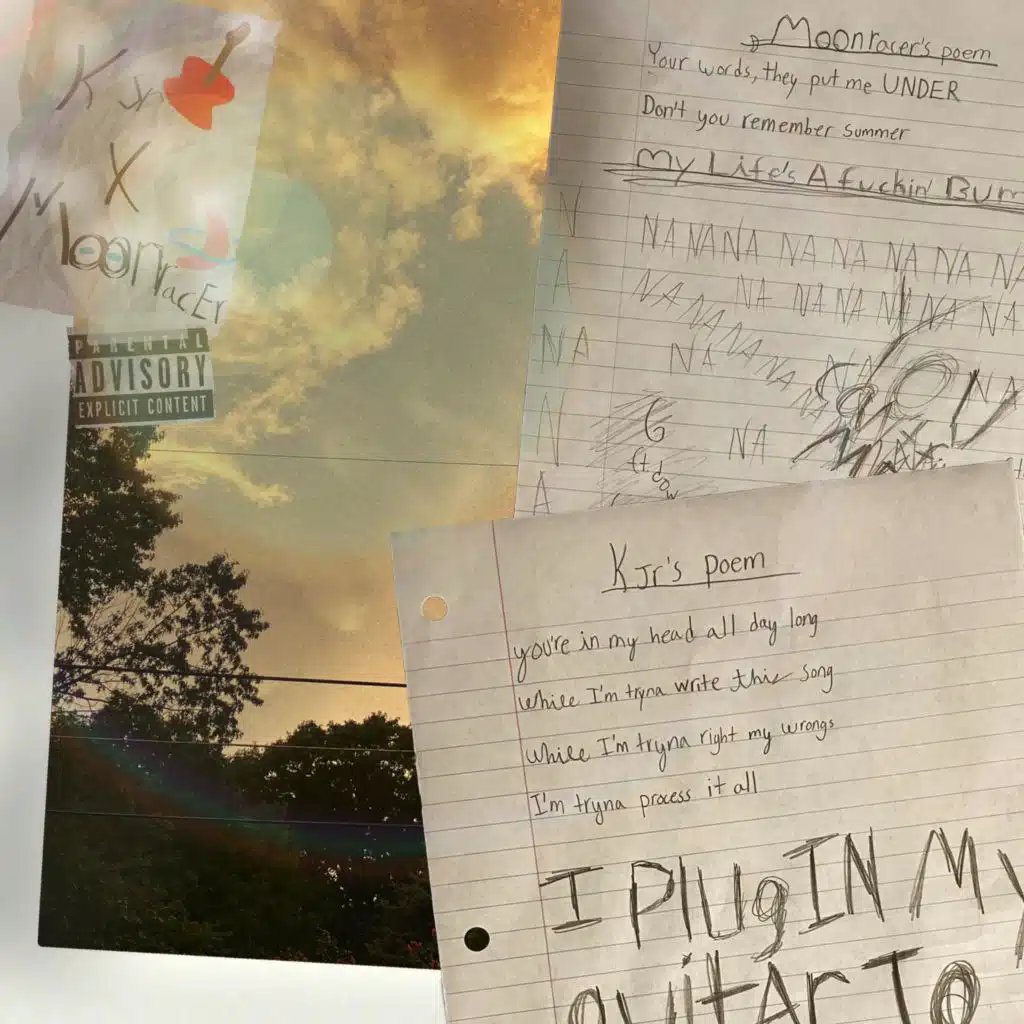 KJr
X
MoonracEr
PARENTAL
ADVISORY
EXPLICIT CONTENT
Moonracer's poem
Your words, they put me UNDER
Don't you remember summer
My Life's A fuckin' Bum
N
A
NA
N
A
NA NA NA NA NA NA NA NA
NA NA NA NA NA NA
NA NA NA NA NA NA
NA
NA
NA
NA
KJr's poem
you're in my head all day long
While I'm tryna write this song
While I'm tryna right my wrongs
I'm tryna process it all
I PlUgIN My
guitAr To